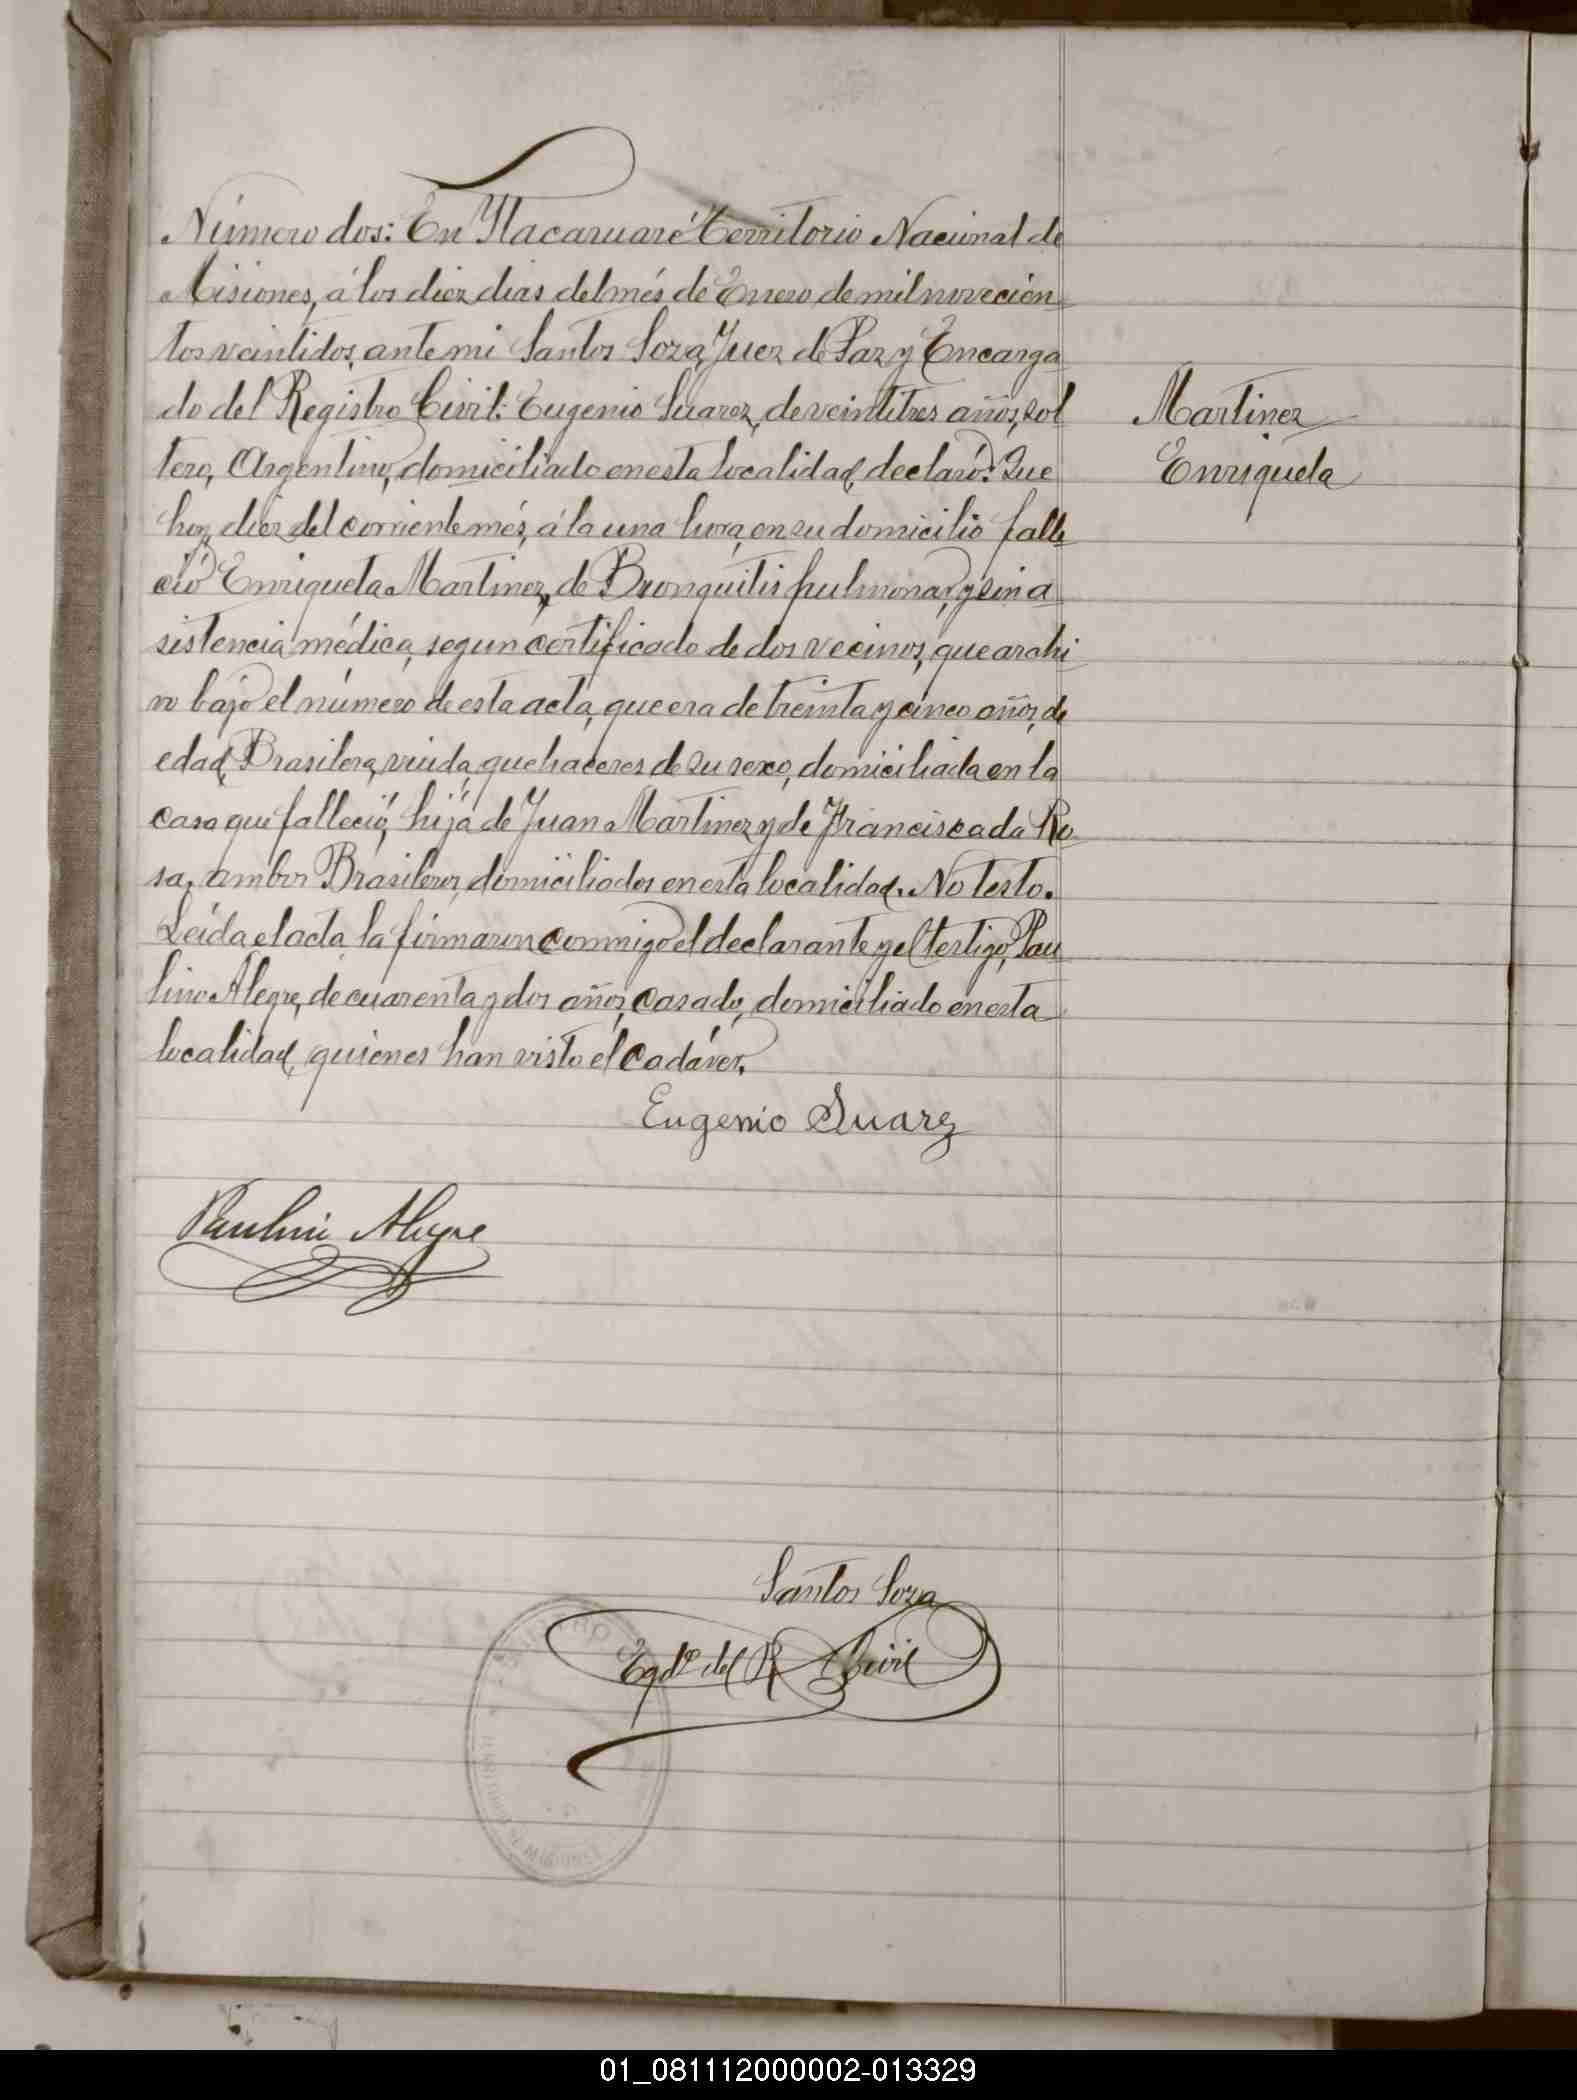 Número dos: En Ytacaruaré Territorio Nacional de
Misiones, á los diez dias del més de Enero de mil novecien
tos veintidos, ante mi Santos Soza, Juez de Paz y Encarga
do del Registro Civil: Eugenio Suarez, de veintitres años, sol
tero, Argentino, domiciliado en esta localidad, declaró: Que
hoy, diez del corriente més, á la una hora, en su domicilio falle
ció Enriqueta Martinez, de Bronquitis pulmonar, y sin a
sistencia médica, segun certificado de dos vecinos, que archi
vo bajo el número de esta acta, que era de treinta y cinco años, de
edad, Brasilera, viuda, quehaceres de su sexo, domiciliada en la
casa que falleció, hija de Juan Martinez y de Francisca da Ro
sa, ambos Brasileros, domiciliados en esta localidad. No testo.
Leida el acta, la firmaron conmigo el declarante y el testigo, Pau
lino Alegre, de cuarenta y dos años, casado, domiciliado en esta
localidad, quienes han visto el cadáver.
Martinez
Enriqueta
Eugenio Suarez
Paulino Alegre
Santos Soza
Egdo del R Civil
01_081112000002-013329